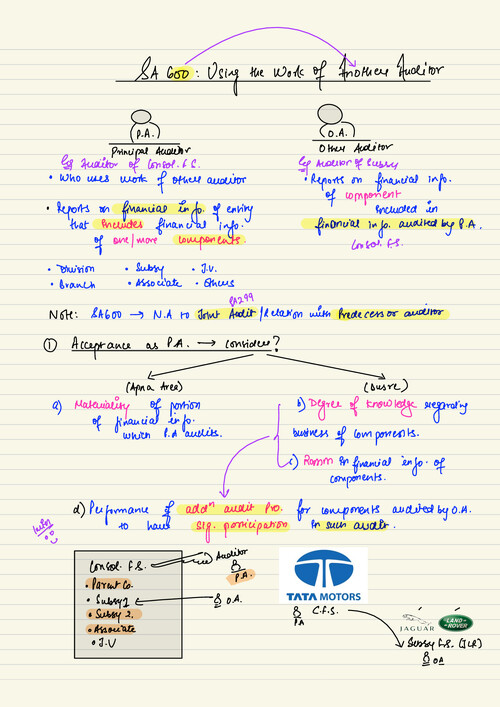 SA 600 : Using the Work of Another Auditor
P.A.
O.A.
Principal Auditor
Other Auditor
Eg Auditor of Consol. F.S.
Eg Auditor of Subsy
• Who uses work of other auditor
• Reports on financial info.
of component
included in
financial info. audited by P.A.
Consol. F.S.
• Reports on financial info. of entity
that includes financial info.
of one/more components.
• Division • Subsy • J.V.
• Branch • Associate • Others
SA299
Note: SA600 → N.A to Joint Audit/Relation with Predecessor auditor
① Acceptance as P.A. → consider?
(Apna Area)
(Dusre)
a) Materiality of portion
of financial info.
which P.A audits.
b) Degree of knowledge regarding
business of components.
c) ROMM in financial info. of
components.
d) Performance of addn audit pro. for components audited by O.A.
to have sig. participation in such audit.
Consol. F.S.
Auditor
P.A.
• Parent Co.
• Subsy 1
O.A.
• Subsy 2.
• Associate
• J.V
TATA MOTORS
C.F.S.
PA
JAGUAR
LAND-
ROVER
Subsy F.S. (JLR)
OA